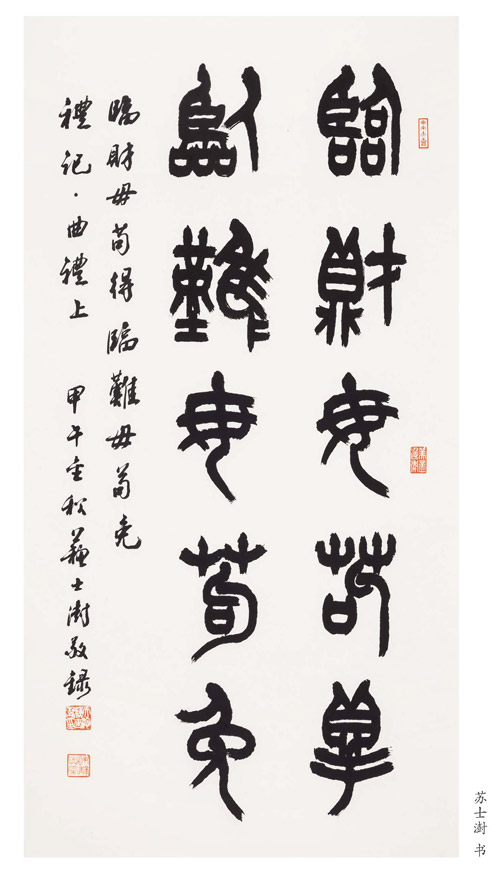 臨財毋苟得
臨難毋苟免
臨財毋苟得臨難毋苟免
禮記·曲禮上 甲午重秋蘇士澍敬録
苏士澍 书